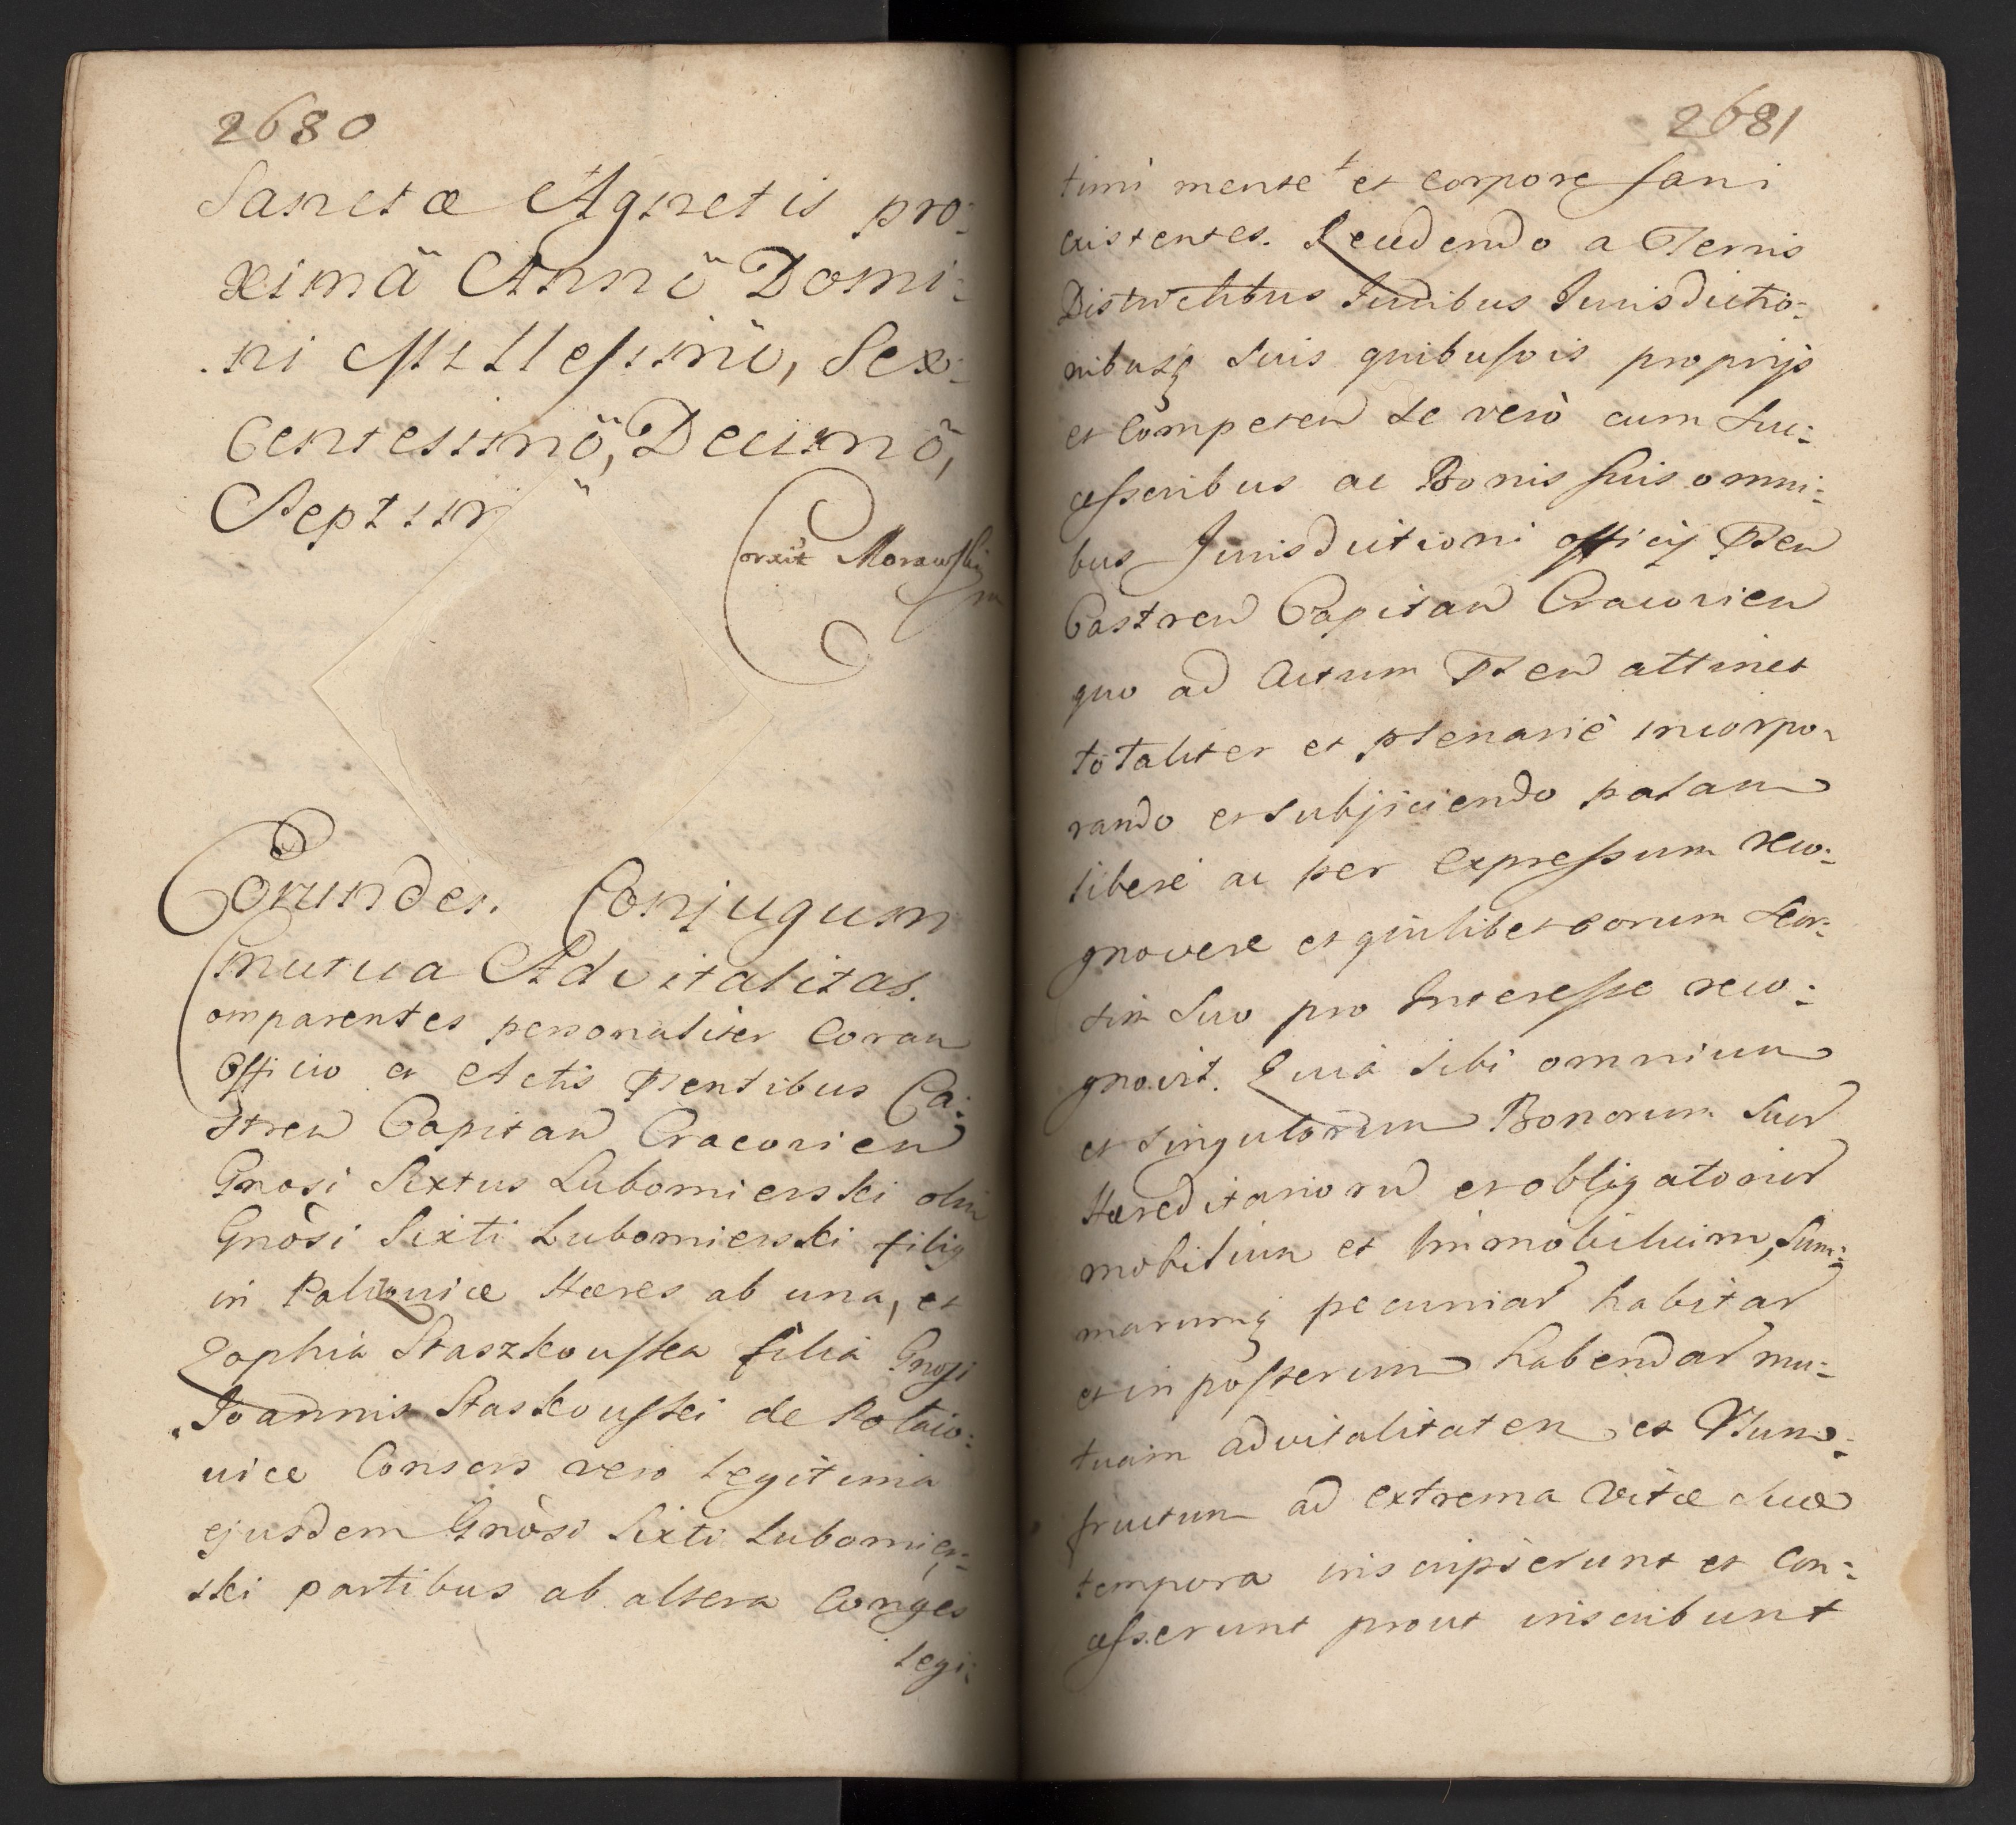 2680
Sanctæ Agnetis pro:
ximã Annõ Domi:
ni Millesimõ, Sex:
Centesimõ, Decimõ,
Septim
Corxit Morawski
Eorundem Conjugum
mutua Advitalitas.
Comparentes personaliter Coram
Officio et Actis Pntibus Ca:
stren Capitan Cracovien
Gnosi Sixtus Lubomierski olim
Gnòsi Sixti Lubomierski filiq
in Hæres ab una, et
Zophia Staszkowska filia Gnosi
Joannis Staskowski de
vice Consors vero legitima
ejusdem Gnòsi Sixti Lubomier:
ski partibus ab altera Conges
legi:
2681
timi mente et corpore sani
existentes. Recedendo a Terris
Districtibus Judibus Jurisdictio:
nibusq suis quibusvis proprijs
et Competen se verò cum Suc:
cessoribus ac Bonis suis omni:
bus Jurisdictioni officij Pnten
Castren Capitan Cracovien
quo ad Actum Pnten attinet
totaliter et plenariè incorpo:
rando et subjiciendo palam
liberè ac per expressum reco:
gnovere et quilibet eorum seor:
sim suo pro Interesse reco:
gnovit. Quia sibi omnium
et singulorum Bonorum suor
Hæreditariorum et obligatorior
mobilium et Immobilium, Sum:
marumq pecuniar habitar
et in posterum habendar mu:
tuam advitalitatem et Usum:
fructum ad extrema vitæ suæ
tempora inscripserunt et Con:
cesserunt prout inscribunt